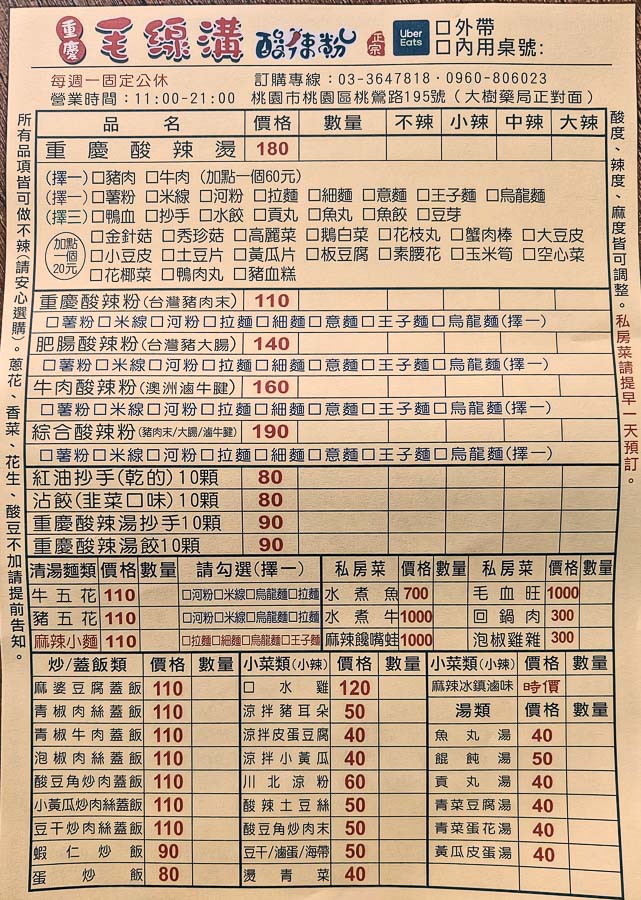 重慶 毛線溝 酸辣粉 正宗 Uber Eats □外帶
□內用桌號:
每週一固定公休 訂購專線：03-3647818‧0960-806023
營業時間：11:00-21:00 桃園市桃園區桃鶯路195號（大樹藥局正對面）
所有品項皆可做不辣(請安心選購)。蔥花、香菜、花生、酸豆不加請提前告知。
品名 價格 數量 不辣 小辣 中辣 大辣
重慶酸辣燙 180
(擇一)□豬肉 □牛肉 (加點一個60元)
(擇一)□薯粉 □米線 □河粉 □拉麵 □細麵 □意麵 □王子麵 □烏龍麵
(擇三)□鴨血 □抄手 □水餃 □貢丸 □魚丸 □魚餃 □豆芽
加點一個20元
□金針菇 □秀珍菇 □高麗菜 □鵝白菜 □花枝丸 □蟹肉棒 □大豆皮
□小豆皮 □土豆片 □黃瓜片 □板豆腐 □素腰花 □玉米筍 □空心菜
□花椰菜 □鴨肉丸 □豬血糕
重慶酸辣粉(台灣豬肉末) 110
□薯粉□米線□河粉□拉麵□細麵□意麵□王子麵□烏龍麵(擇一)
肥腸酸辣粉(台灣豬大腸) 140
□薯粉□米線□河粉□拉麵□細麵□意麵□王子麵□烏龍麵(擇一)
牛肉酸辣粉(澳洲滷牛腱) 160
□薯粉□米線□河粉□拉麵□細麵□意麵□王子麵□烏龍麵(擇一)
綜合酸辣粉(豬肉末/大腸/滷牛腱) 190
□薯粉□米線□河粉□拉麵□細麵□意麵□王子麵□烏龍麵(擇一)
紅油抄手(乾的)10顆 80
沾餃(韭菜口味)10顆 80
重慶酸辣湯抄手10顆 90
重慶酸辣湯餃10顆 90
酸度、辣度、麻度皆可調整。私房菜請提早一天預訂。
清湯麵類 價格 數量 請勾選(擇一) 私房菜 價格 數量 私房菜 價格 數量
牛五花 110 □河粉□米線□烏龍麵□拉麵 水煮魚 700 毛血旺 1000
豬五花 110 □河粉□米線□烏龍麵□拉麵 水煮牛 1000 回鍋肉 300
麻辣小麵 110 □拉麵□細麵□烏龍麵□王子麵 麻辣饞嘴蛙 1000 泡椒雞雜 300
炒/蓋飯類 價格 數量 小菜類(小辣) 價格 數量 小菜類(小辣) 價格 數量
麻婆豆腐蓋飯 110 口水雞 120 麻辣冰鎮滷味 時價
青椒肉絲蓋飯 110 涼拌豬耳朵 50 湯類 價格 數量
青椒牛肉蓋飯 110 涼拌皮蛋豆腐 40 魚丸湯 40
泡椒肉絲蓋飯 110 涼拌小黃瓜 40 餛飩湯 50
酸豆角炒肉蓋飯 110 川北涼粉 60 貢丸湯 40
小黃瓜炒肉絲蓋飯 110 酸辣土豆絲 50 青菜豆腐湯 40
豆干炒肉絲蓋飯 110 酸豆角炒肉末 50 青菜蛋花湯 40
蝦仁炒飯 90 豆干/滷蛋/海帶 50 黃瓜皮蛋湯 40
蛋炒飯 80 燙青菜 40